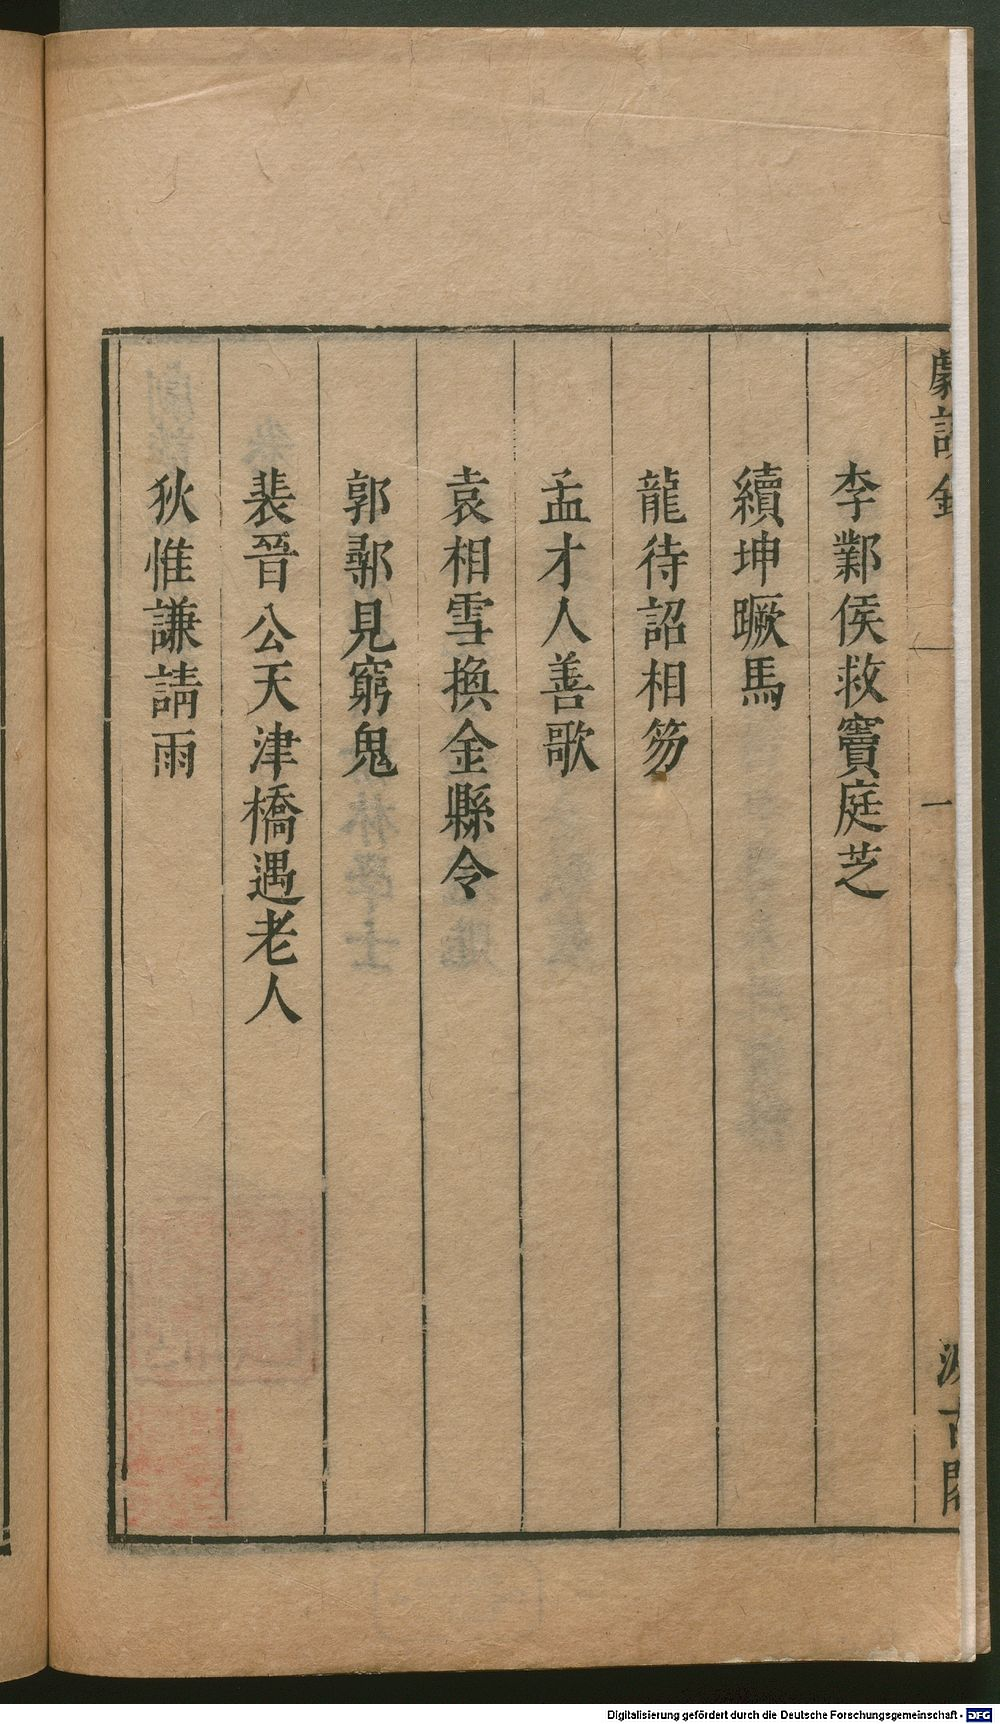 劇談錄
一
汲古閣
李鄴侯救竇庭芝
續坤蹶馬
龍待詔相笏
孟才人善歌
袁相雪換金縣令
郭鄩見窮鬼
裴晉公天津橋遇老人
狄惟謙請雨
Digitalisierung gefördert durch die Deutsche Forschungsgemeinschaft - DFG